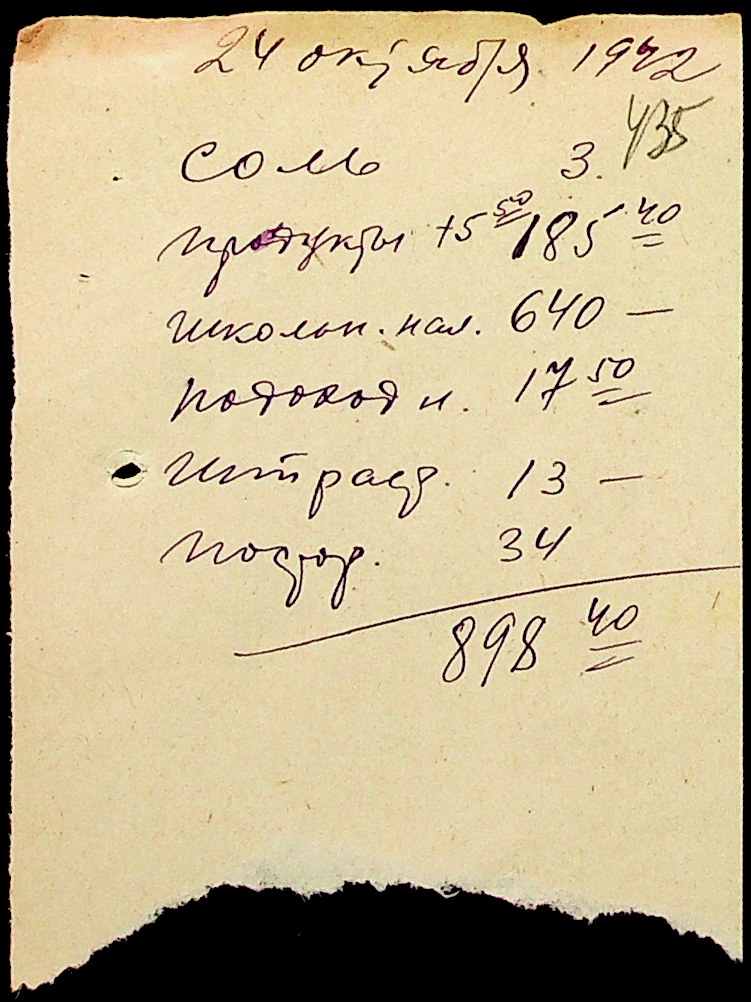 24 октября 1942
435
соль 3.
продукты +5 50 185 40
школьн. нал. 640 —
подоход н. 17 50
13 —
34
898 40